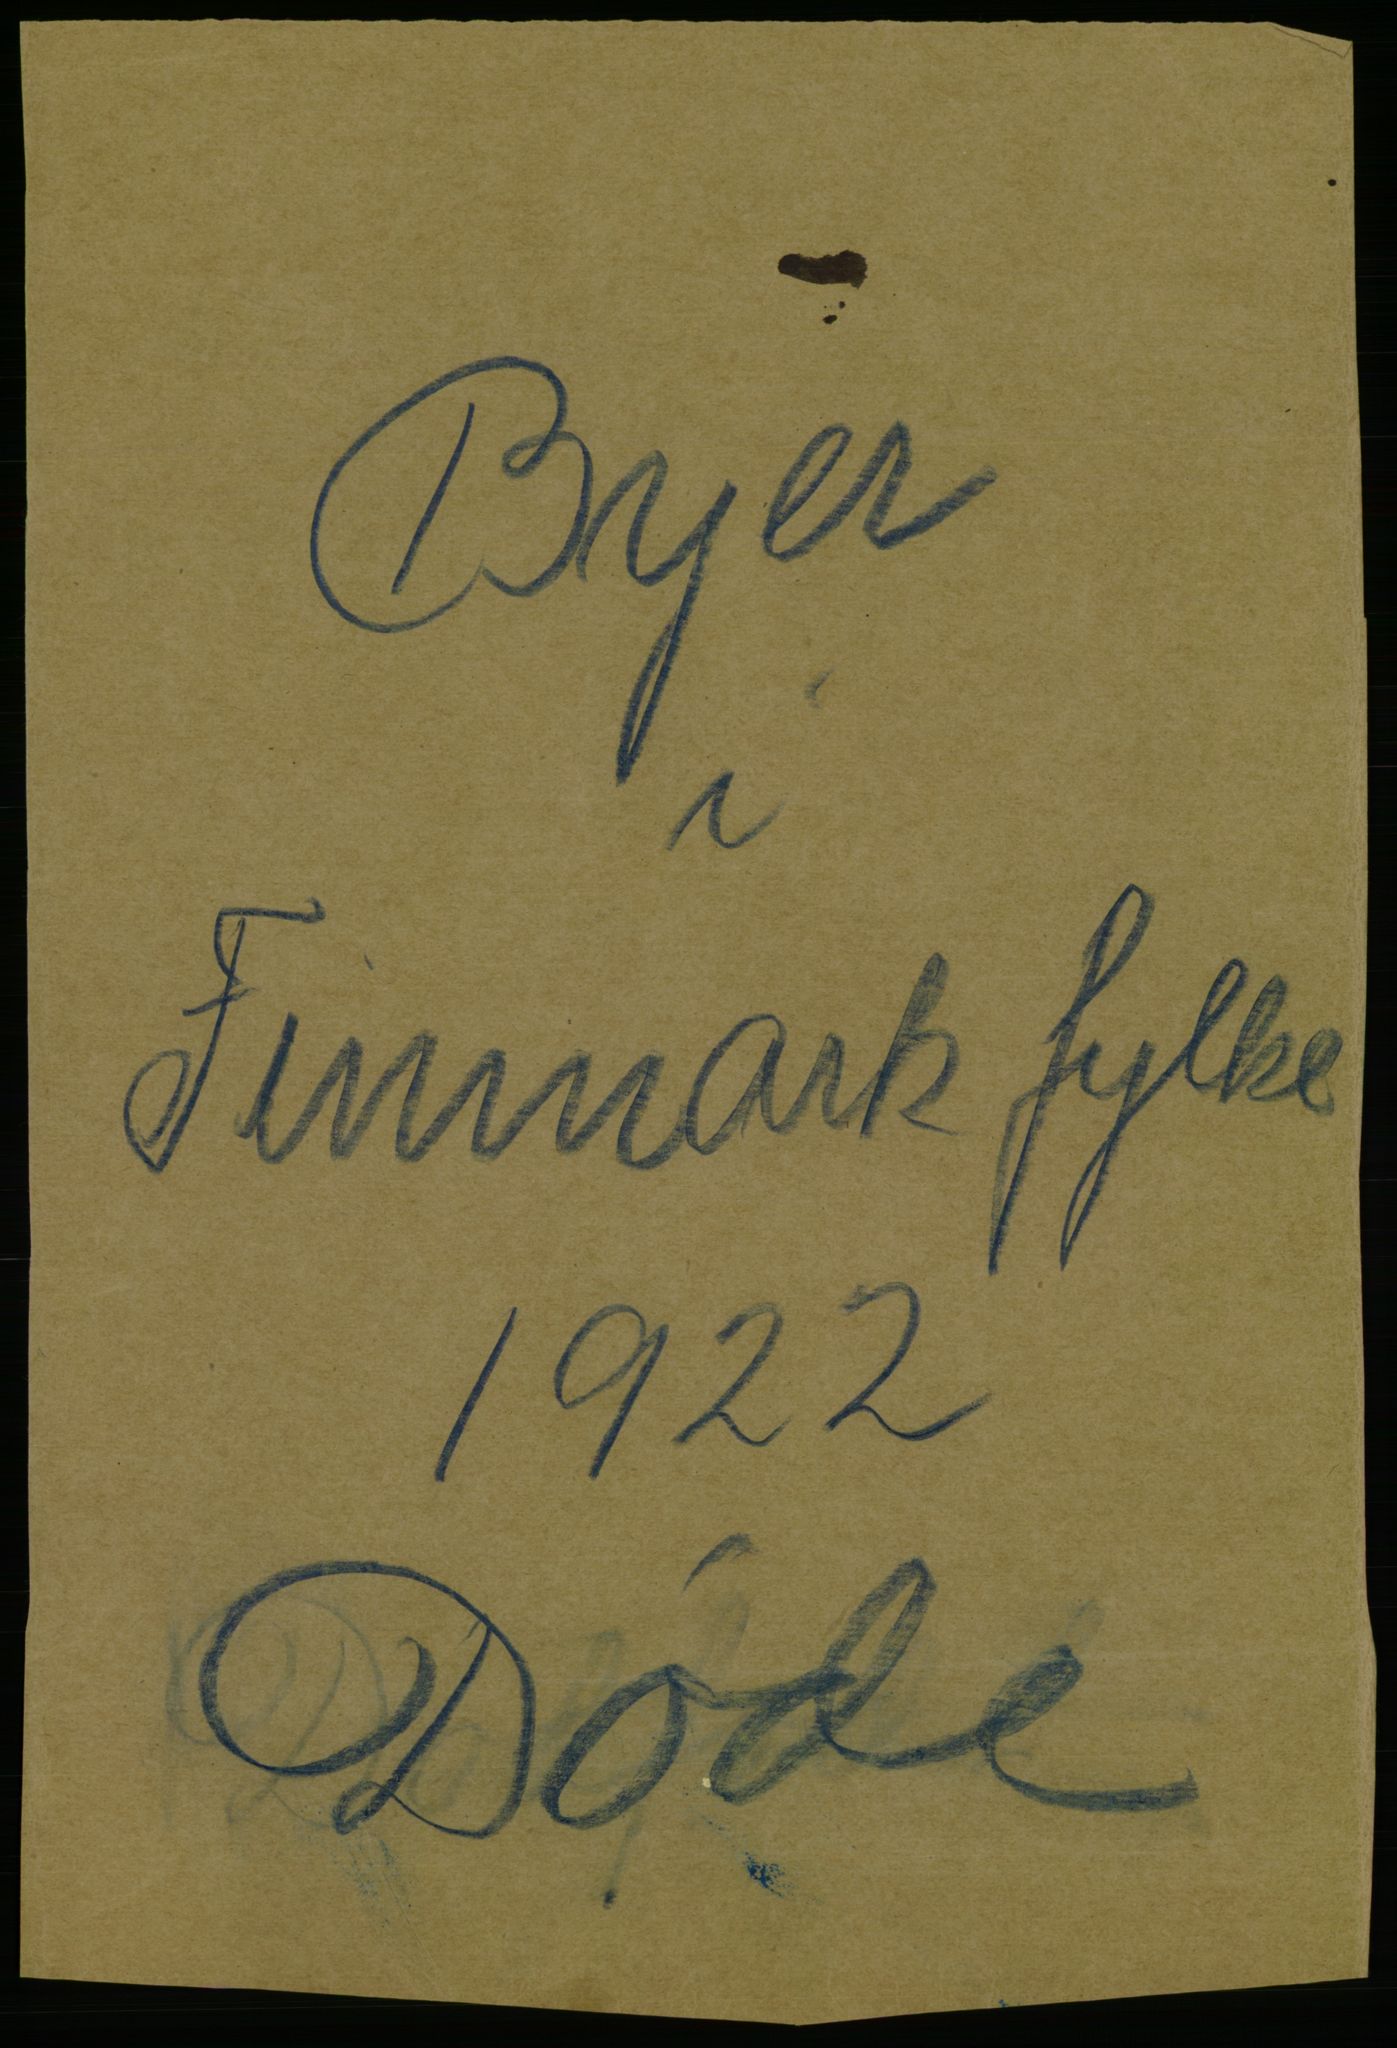 Byer
i
Finmark fylke
1922
Døde